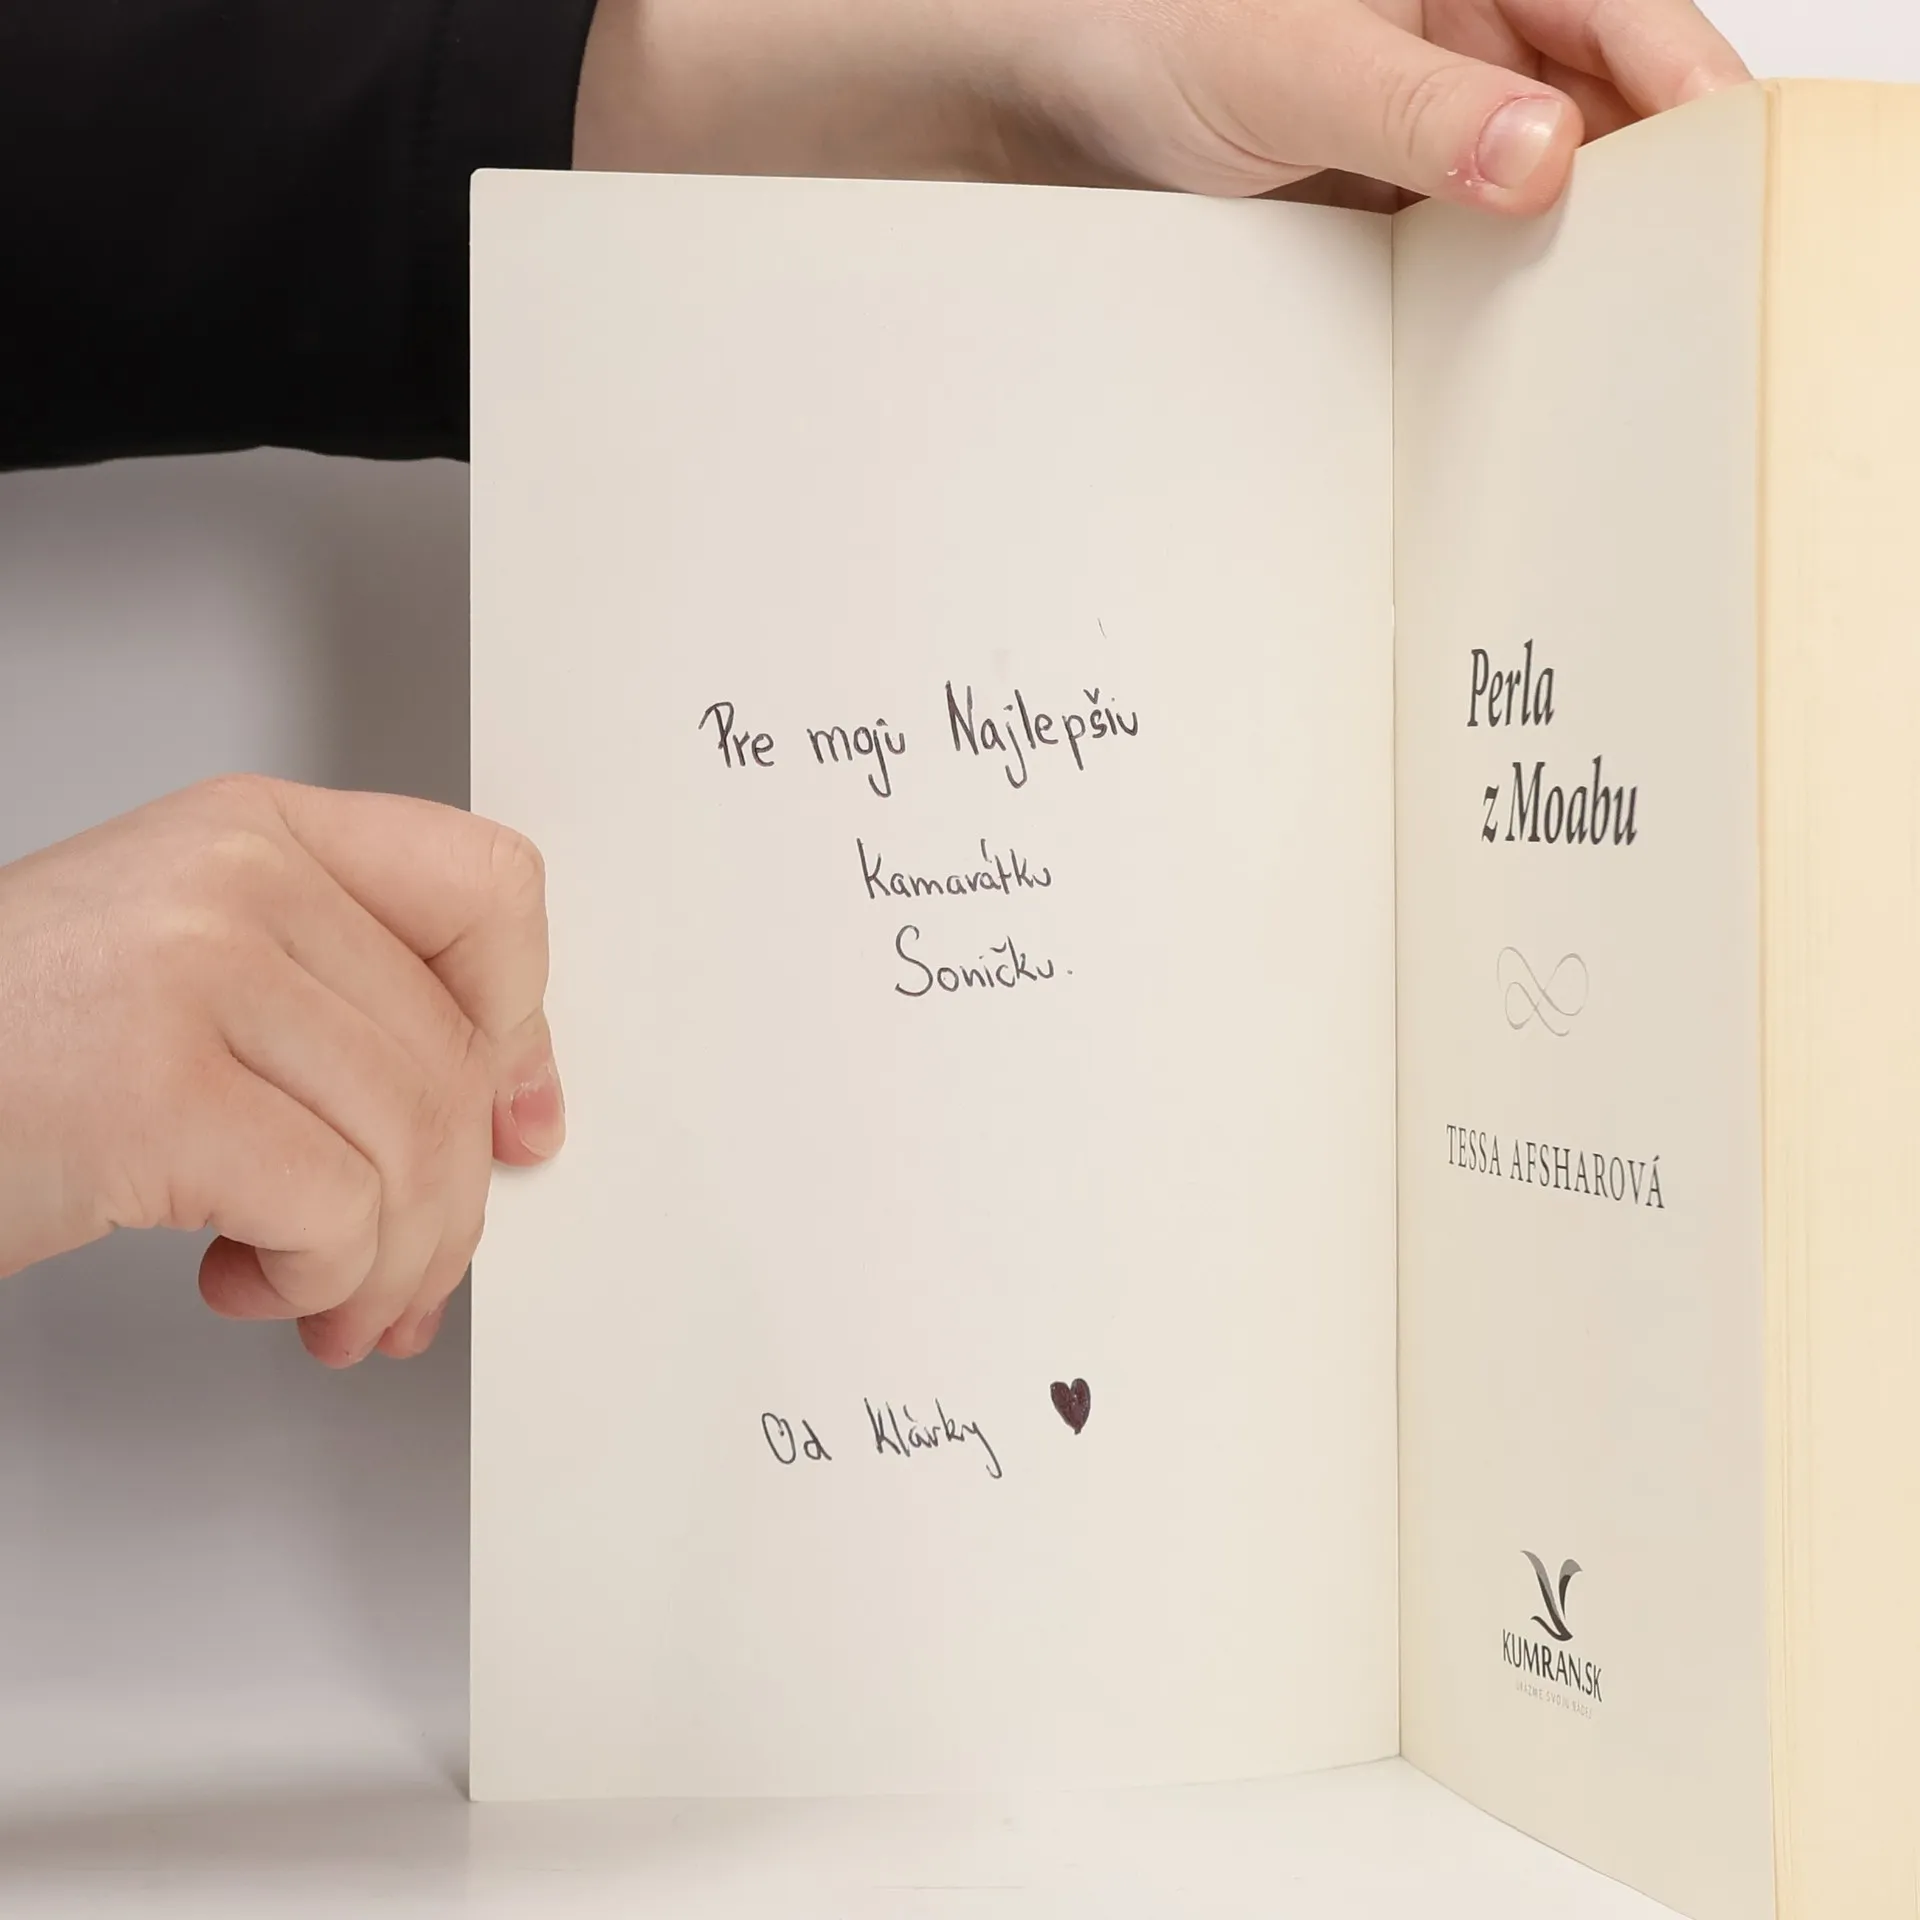 Pre moju Najlepšiu
Kamarátku
Soničku.
Od Klárky
Perla
z Moabu
TESSA AFSHAROVÁ
KUMRAN.SK